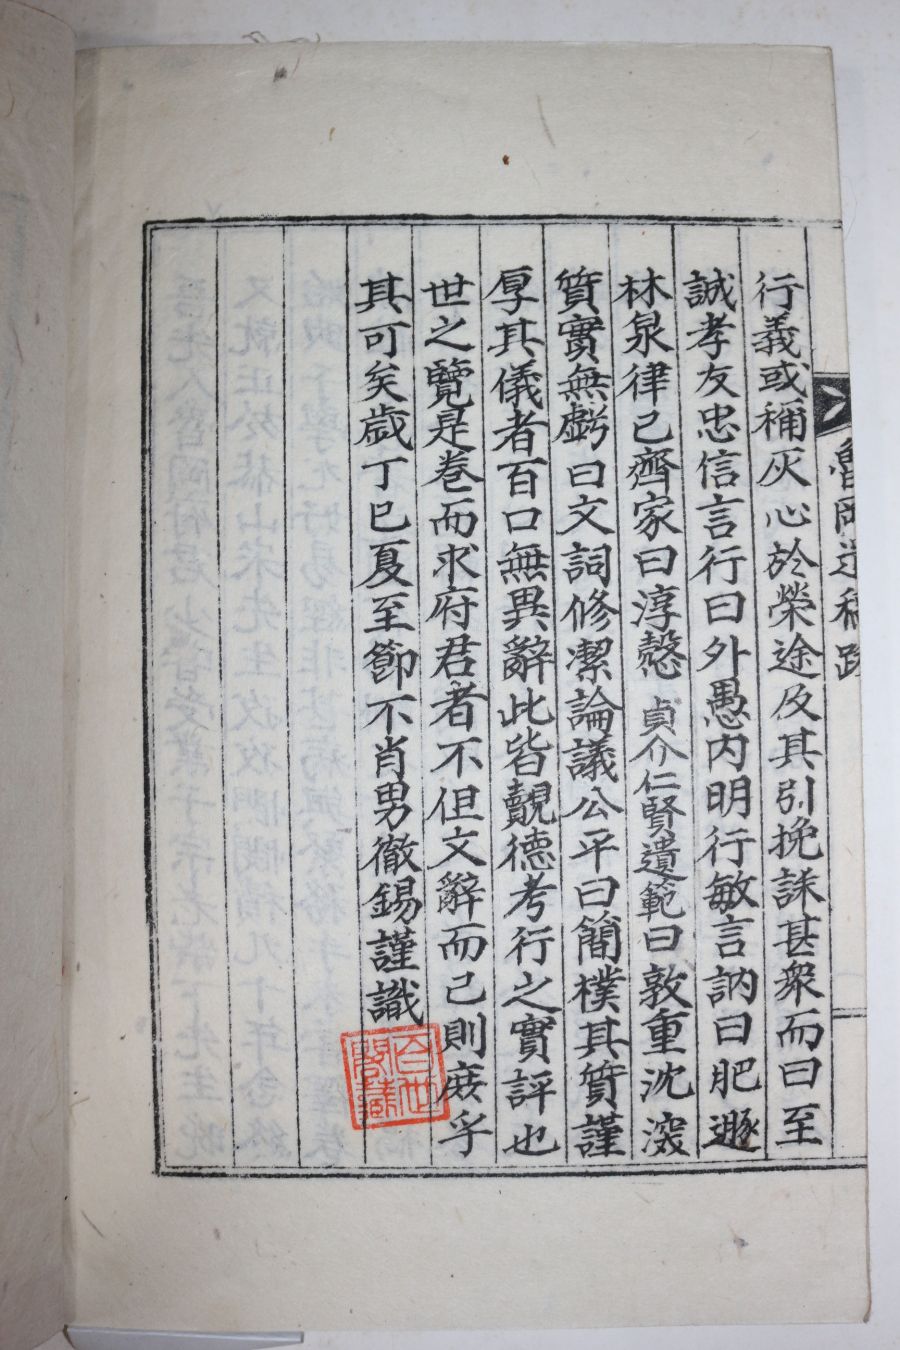 魯岡遺稿跋
行義或稱灰心於榮途及其引挽誄甚衆而曰至
誠孝友忠信言行曰外愚內明行敏言訥曰肥遯
林泉律己齊家曰淳慤貞介仁賢遺範曰敦重沈深
質實無虧曰文詞修潔論議公平曰簡樸其質謹
厚其儀者百口無異辭此皆觀德考行之實評也
世之覽是卷而求府君者不但文辭而已則庶乎
其可矣歲丁巳夏至節不肖男徹錫謹識
百世
閣藏